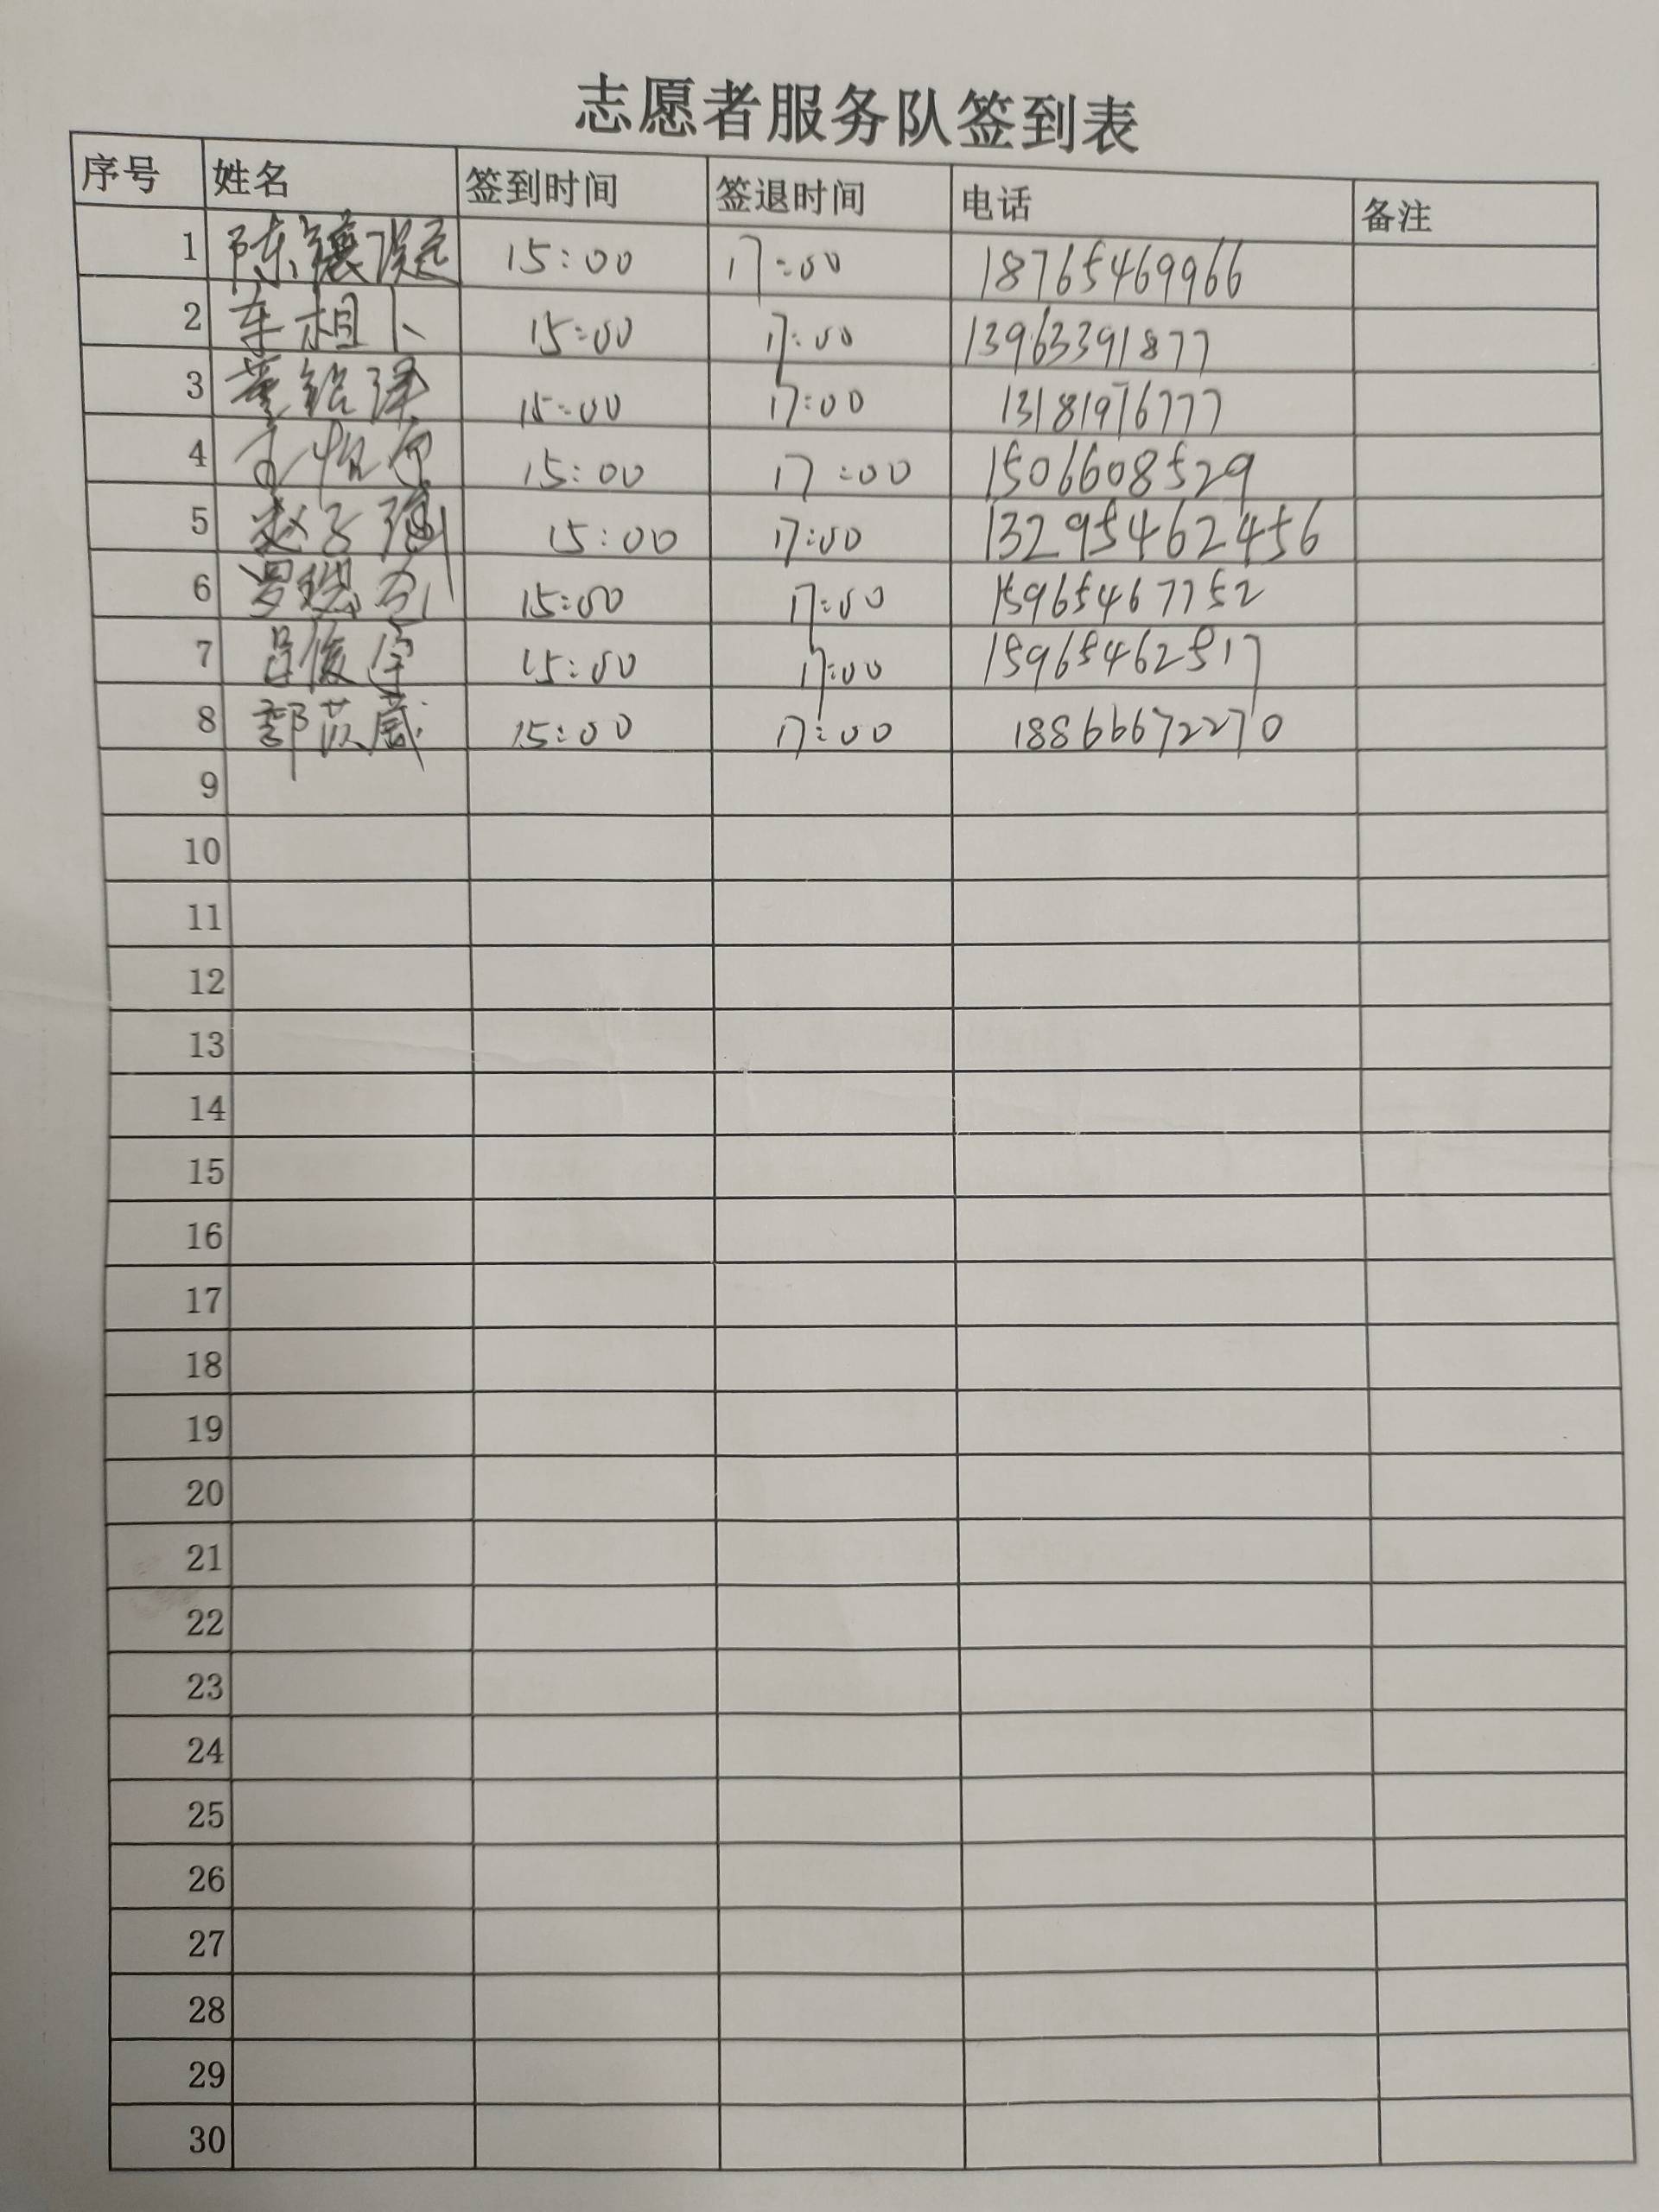 志愿者服务队签到表
序号 姓名 签到时间 签退时间 电话 备注
1 陈 15:00 17:00 18765469966
2 车相卜 15:00 17:00 13963391877
3 董铭泽 15:00 17:00 13181976777
4 15:00 17:00 1506608529
5 赵子强 15:00 17:00 13295462456
6 罗 15:00 17:00 15965467752
7 吕俊宇 15:00 17:00 15965462517
8 鄣苡葳 15:00 17:00 18866672270
9
10
11
12
13
14
15
16
17
18
19
20
21
22
23
24
25
26
27
28
29
30